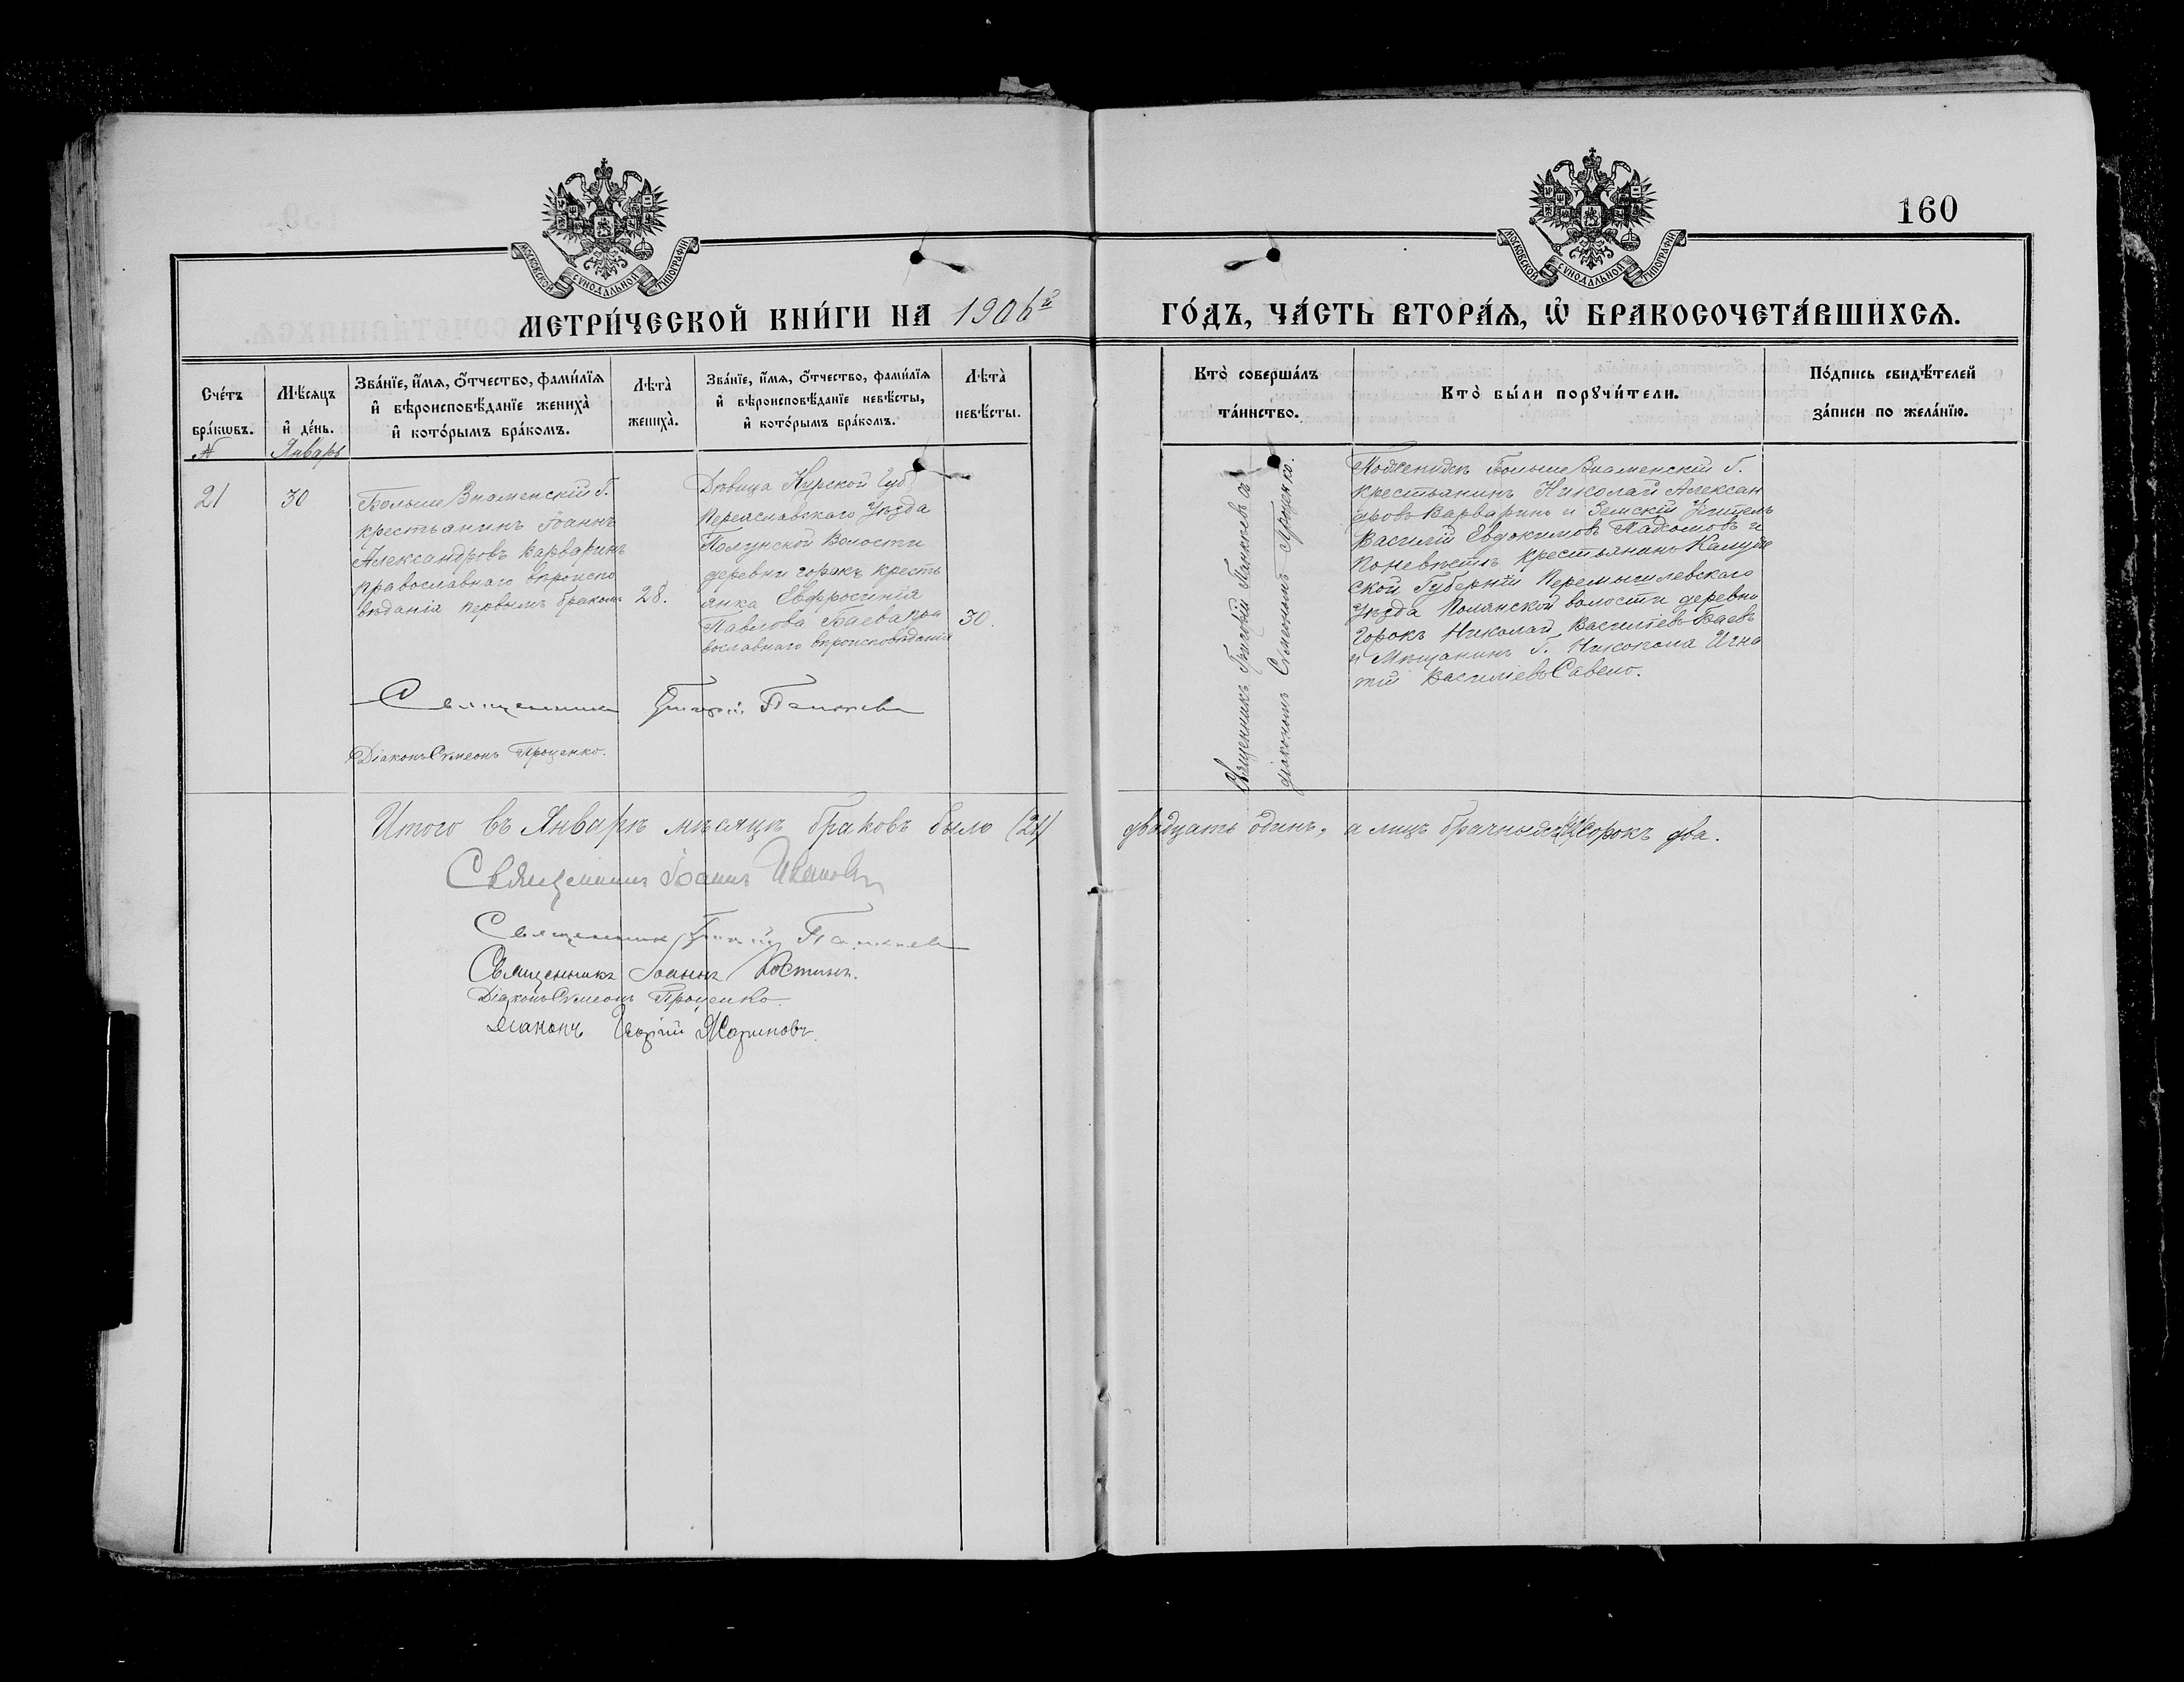 160
МОСКОВСКОЙ СѴНОДАЛЬНОЙ ТИПОГРАФІИ
МОСКОВСКОЙ СѴНОДАЛЬНОЙ ТИПОГРАФІИ
МЕТРИ́ЧЕСКОЙ КНИ́ГИ НА 1906й ГО́ДЪ, ЧА́СТЬ ВТОРА́Я, Ѡ҆ БРАКОСОЧЕТА́ВШИХСЯ.
Сче́тъ бра́кѡвъ.
Мѣ́сяцъ и҆ де́нь.
Зва́нїе, и҆́мя, ѻ҆́тчество, фами́лїя
и҆ вѣроисповѣ́данїе жениха̀
и҆ кото́рымъ бра́комъ.
Лѣта̀ жениха̀.
Зва́нїе, и҆́мя, ѻ҆́тчество, фами́лїя
и҆ вѣроисповѣ́данїе невѣ́сты,
и҆ кото́рымъ бра́комъ.
Лѣта̀ невѣ́сты.
Кто̀ соверша́лъ
та́инство.
Кто̀ бы́ли порꙋчи́тели.
По́дпись свидѣ́телей
за́писи по жела́нїю.
№
Январь
21
30
Больше Знаменскій Г.
крестьянинъ Іоаннъ
Александровъ Варваринъ
православнаго вѣроиспо
вѣданія первымъ бракомъ
28.
Дѣвица Курской Губ
Переяславскаго Уѣзда
Волости
деревни горокъ кресть
янка Евфросинія
Павлова Баева пра
вославнаго вѣроисповѣданія
30.
Священникъ Григорій Панкеевъ съ
діакономъ Симеономъ Проценко.
Поженихѣ Больше Знаменскій Г.
крестьянинъ Николай Алексан
дровъ Варваринъ и Земскій Учитель
Василій Евдокимовъ Пахомовъ и
Поневѣстѣ крестьянинъ Калуж
ской Губерніи Перемышлевскаго
Уѣзда Полянской волости деревни
Горокъ Николай Васильевъ Баевъ
и Мѣщанинъ Г. Никополя Игна
тій Васильевъ Савело.
Священникъ Григорій Панкеевъ
Діаконъ Сѵмеонъ Проценко.
Итого въ Январѣ мѣсяцѣ браковъ было (21) двадцать одинъ, а лицъ брачныхъ (42) сорокъ два.
Священникъ Іоаннъ
Священникъ Григорій Панкеевъ
Священникъ Іоаннъ Костинъ.
Діаконъ Сѵмеонъ Проценко.
Діаконъ Георгій